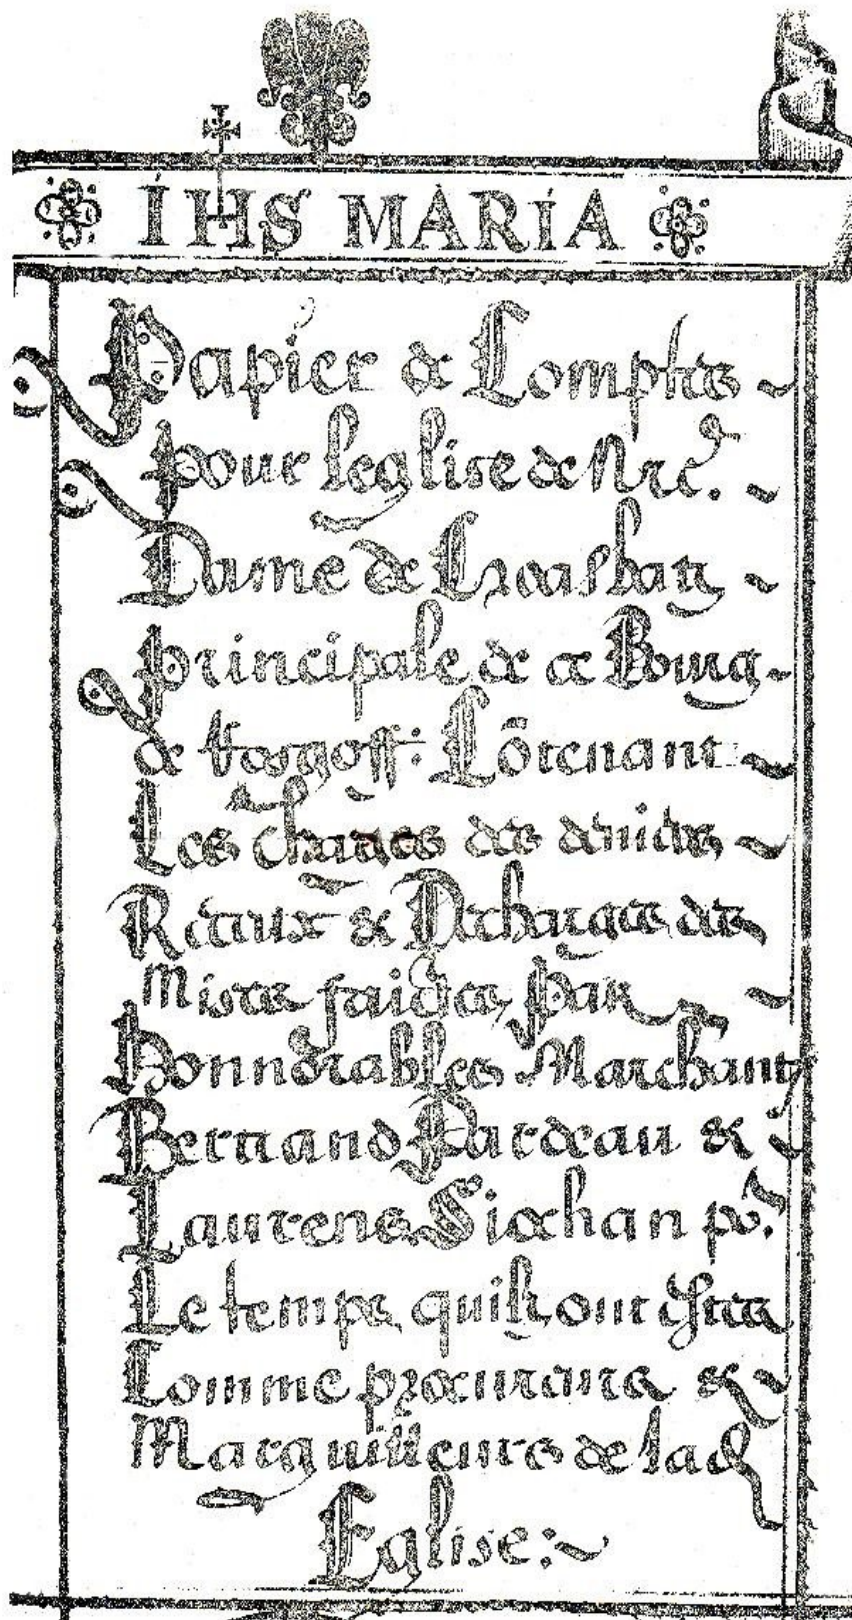 IHS MARIA
Papier de Comptes
pour leglise de Nre.
Dame de Croasbatz
principale de ce Bourg
de Rosgoff: Cõtenant
Les charges des deniers
Receux & Decharges des
Mises faictes Par
Honnorables Marchants
Bertrand Pardeau &
Laurens Siochan po.r
Le temps quilz ont estez
Comme procureurs &
Marguilleurs de lad
Eglise: